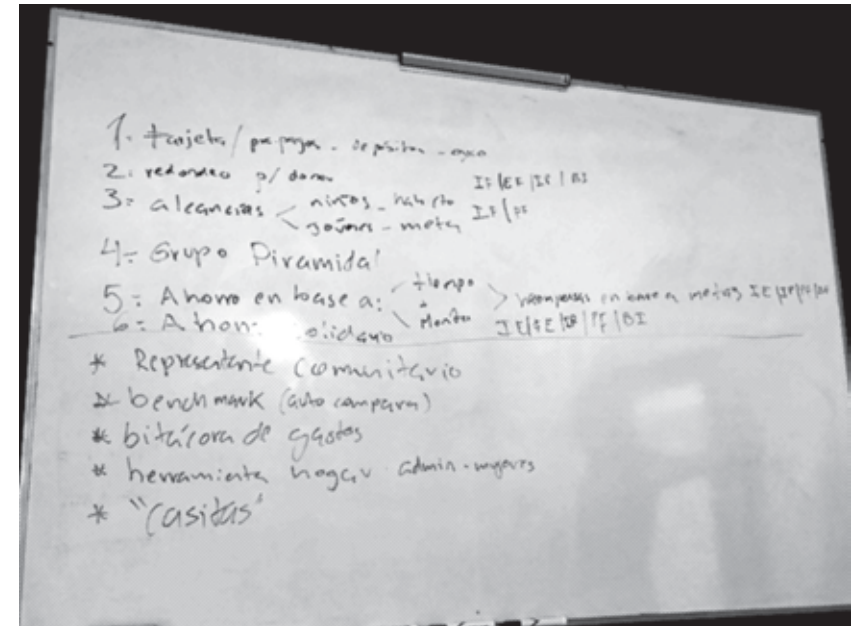 1. tarjeta / pa pagar - depositar -
2. redondeo p/ donar IF|EF|IP|BI
3: alcancías niños - hábito IF|PF
jóvenes - meta
4: Grupo Piramidal
5: Ahorro en base a: tiempo recompensas en base a metas
Monto
6: Ahorr olidario
* Representante comunitario
* benchmark (auto compara)
* bitácora de gastos
* herramienta hogar admin - mujeres
* "Casitas"